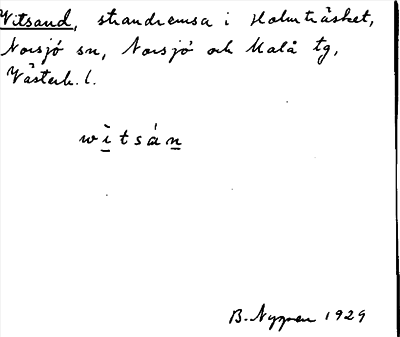 Vitsand, strandremsa i Holmträsket,
Norsjö sn, Norsjö och Malå tg,
Västerb. l.
wìtsán
B. Nygren 1929